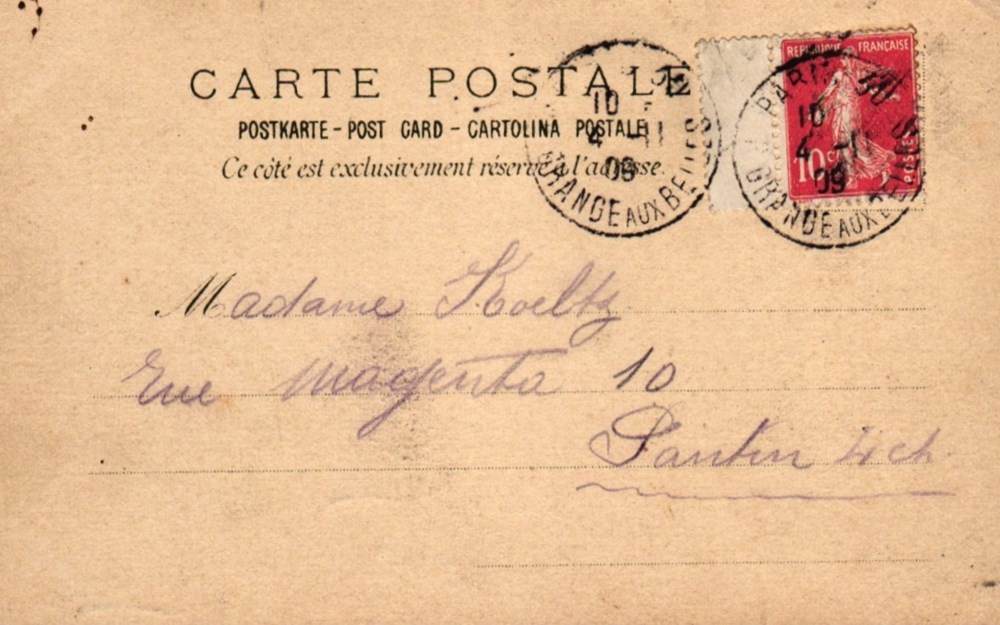 CARTE POSTALE
POSTKARTE - POST CARD - CARTOLINA POSTALE
Ce côté est exclusivement réservé à l'adresse.
10
4 - 11
09
GRANGE AUX BELLES
REPUBLIQUE FRANÇAISE
10c
POSTES
PARIS
10
4 - 11
09
GRANGE AUX
Madame Koeltz
Rue Magenta 10
Pantin